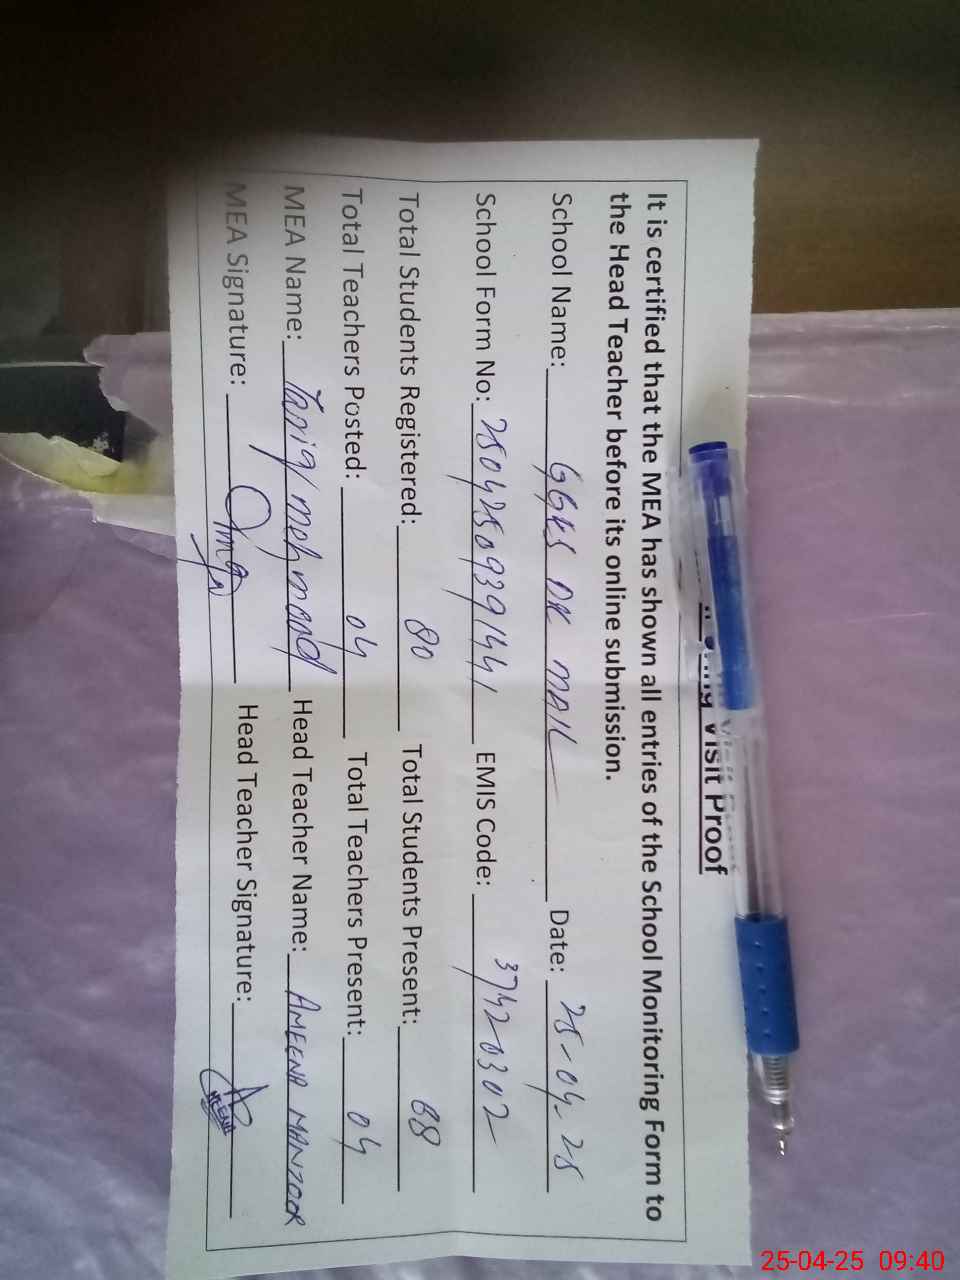 Visit Proof
It is certified that the MEA has shown all entries of the School Monitoring Form to
the Head Teacher before its online submission.
School Name: GGHS DK MAIL Date: 25-04-25
School Form No: 25042509391441 EMIS Code: 37420302
Total Students Registered: 80 Total Students Present: 68
Total Teachers Posted: 04 Total Teachers Present: 04
MEA Name: Tariq mehmood Head Teacher Name: AMEENA MANZOOR
MEA Signature: Head Teacher Signature:
25-04-25 09:40